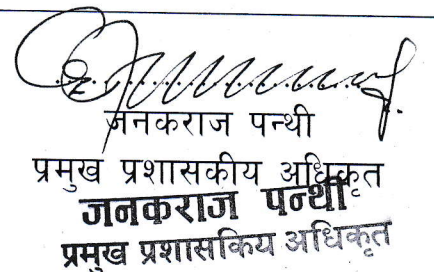 जनकराज पन्थी
प्रमुख प्रशासकीय अधिकृत
जनकराज पन्थी
प्रमुख प्रशासकिय अधिकृत